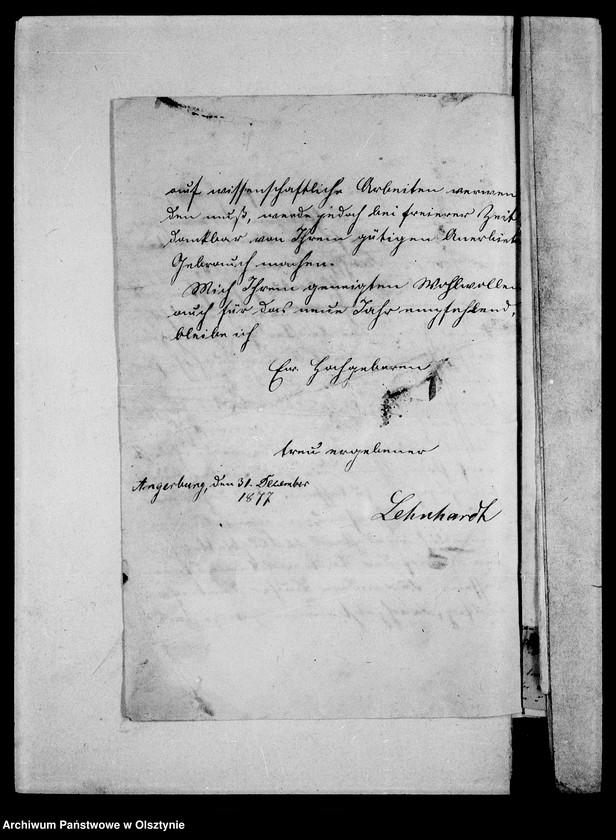 auf wissenschaftliche Arbeiten verwen
den muß, werde jedoch bei freierer Zeit
dankbar von Ihrem gütigen Anerbiet
Gebrauch machen.
Mich Ihrem geneigten Wohlwollen
auch für das neue Jahr empfehlend,
bleibe ich
Ew. Hochgeboren
treu ergebener
Angerburg, den 31. December
1877
Lehnhardt
Archiwum Państwowe w Olsztynie